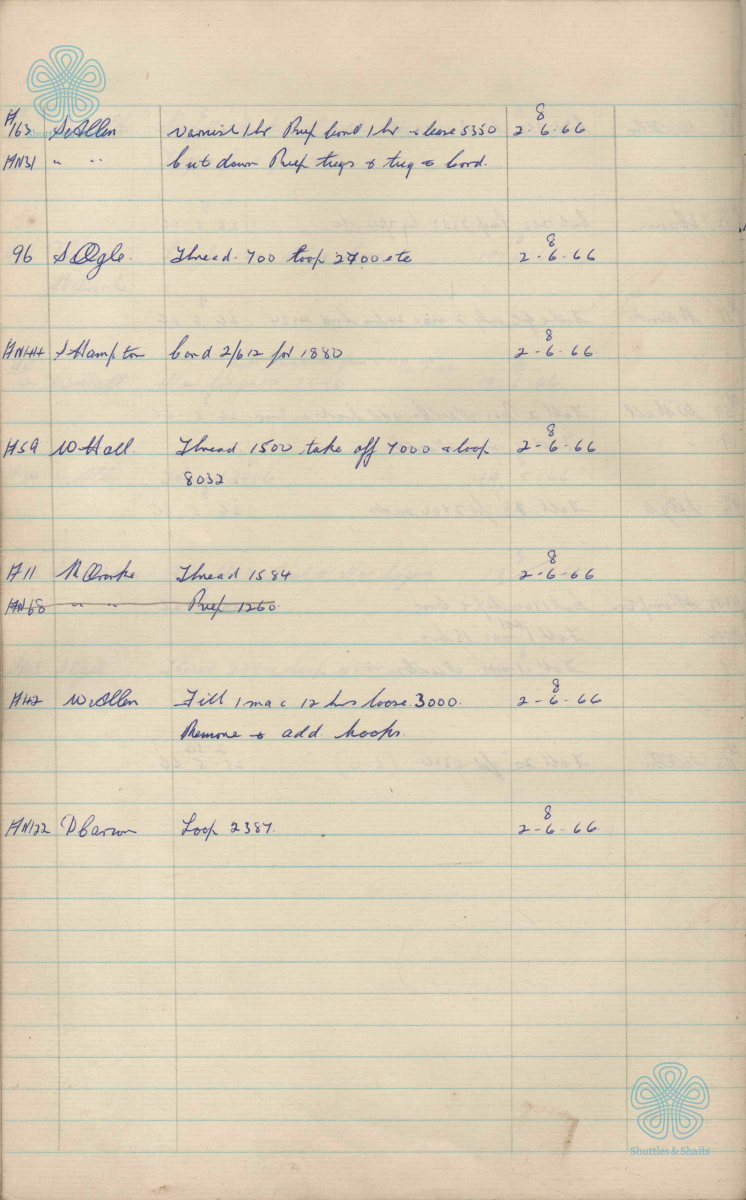 8
A/163 S. Allen Varnish 1 hr Prep cord 1 hr & lease 5350 2-6-66
AN31 " " Cut down Prep tugs & tug & cord.
8
96 S Ogle. Thread 700 loop 2700 etc 2-6-66
8
AN144 S Hampton Cord 2/612 for 1880 2-6-66
8
A59 W Hall Thread 1500 take off 7000 & loop 2-6-66
8032.
8
A11 Thread 1584 2-6-66
AN68 " " Prep 1260
8
A42 W. Allen Fill 1 mac 12 hrs loose 3000. 2-6-66
Remove & add hooks.
8
AN122 Loop 2387. 2-6-66
Shuttles & Shafts